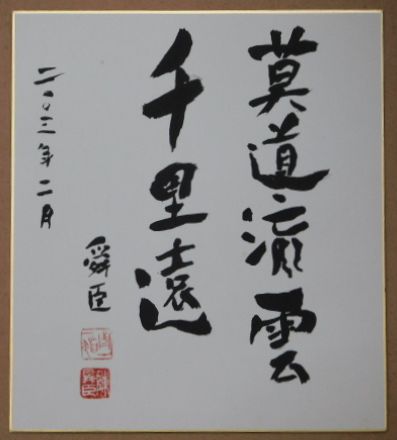 莫道流雲
千里遠
二〇〇三年二月
舜臣